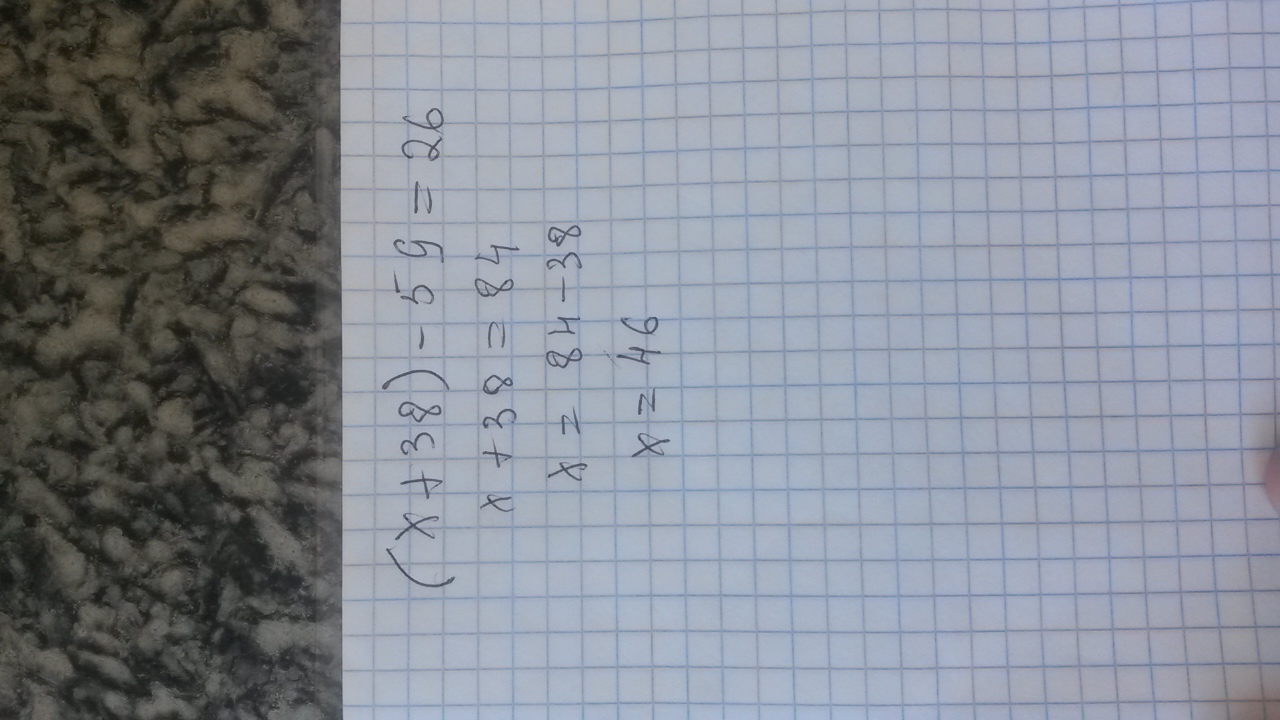 (x + 38) - 59 = 26
x + 38 = 84
x = 84 - 38
x = 46